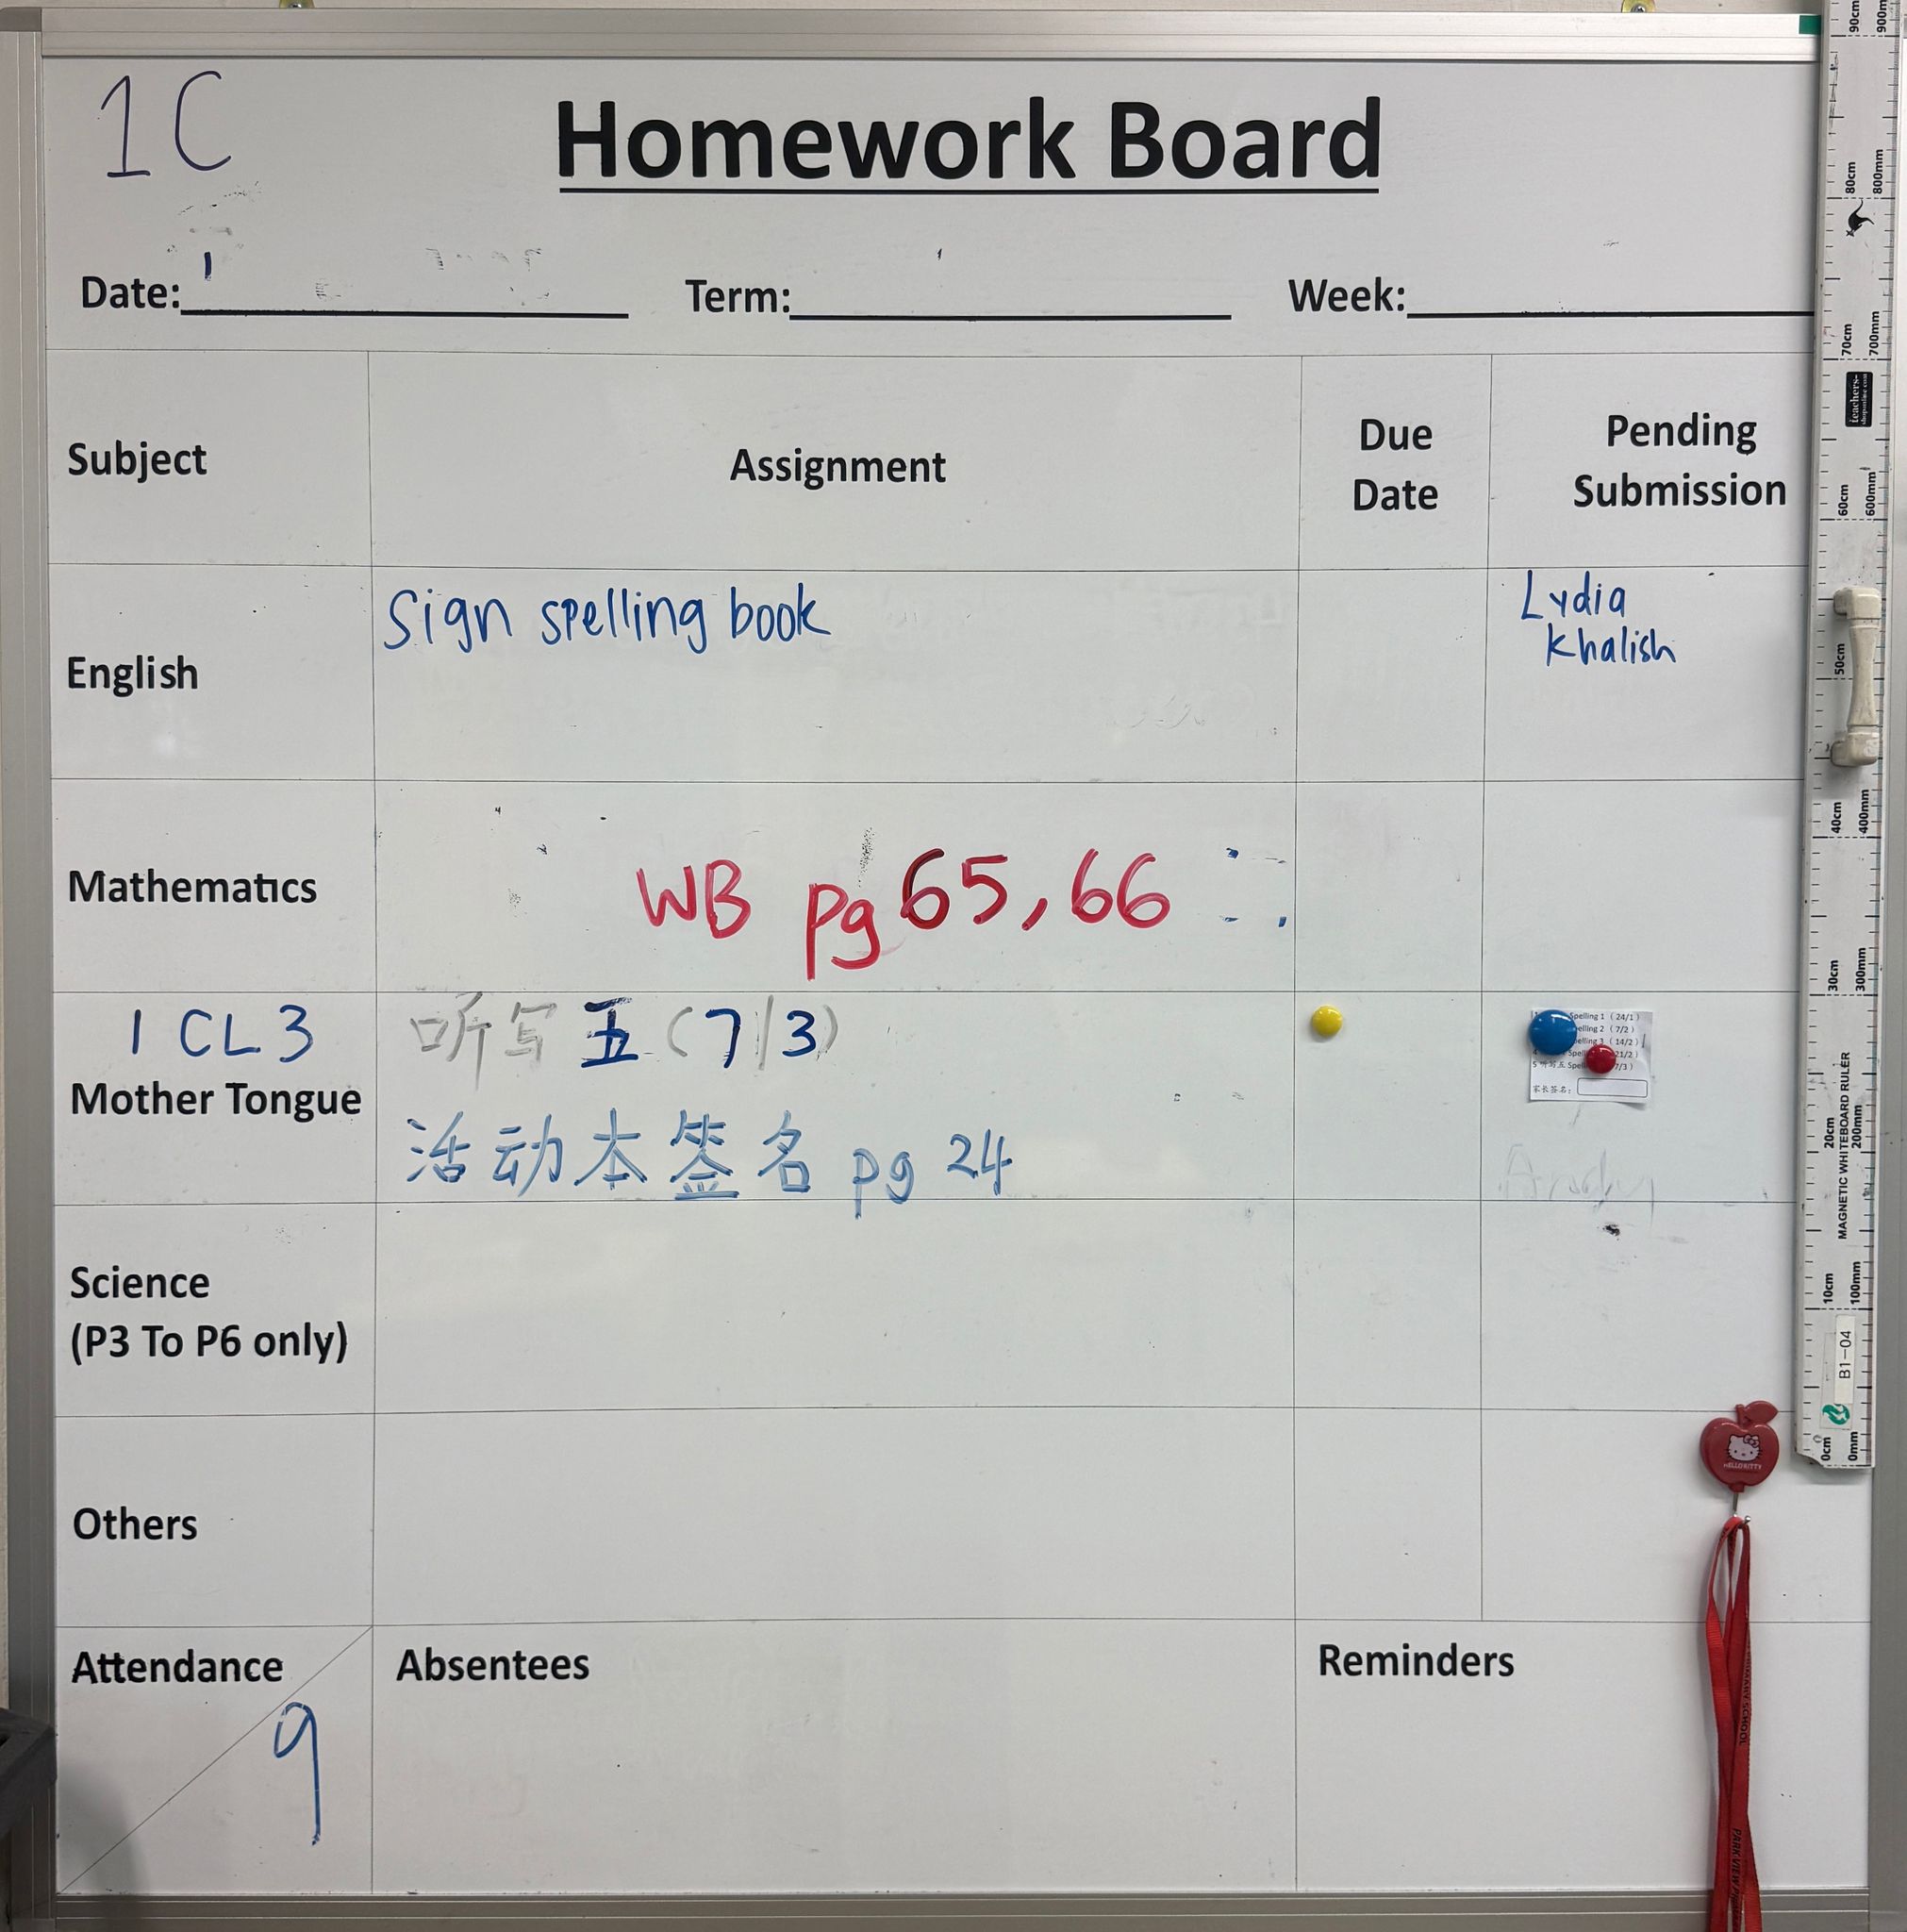 1C
Homework Board
Date:
Term:
Week:
Subject
Assignment
Due Date
Pending Submission
English
Sign spelling book
Lydia
Khalish
Mathematics
WB pg 65, 66
1 CL3
Mother Tongue
听写五 (7/3)
活动本签名 pg 24
Spelling 1 (24/1)
elling 2 (7/2)
elling 3 (14/2)
Spel 21/2)
5 听写五 Spe 7/3)
家长签名:
Science
(P3 To P6 only)
Others
Attendance
9
Absentees
Reminders
90cm 900m
80cm 800mm
70cm 700mm
teachers-
60cm 600mm
50cm
40cm 400mm
30cm 300mm
20cm 200mm
MAGNETIC WHITEBOARD RULER
10cm 100mm
B1-04
0cm 0mm
HELLO KITTY
PARK VIEW